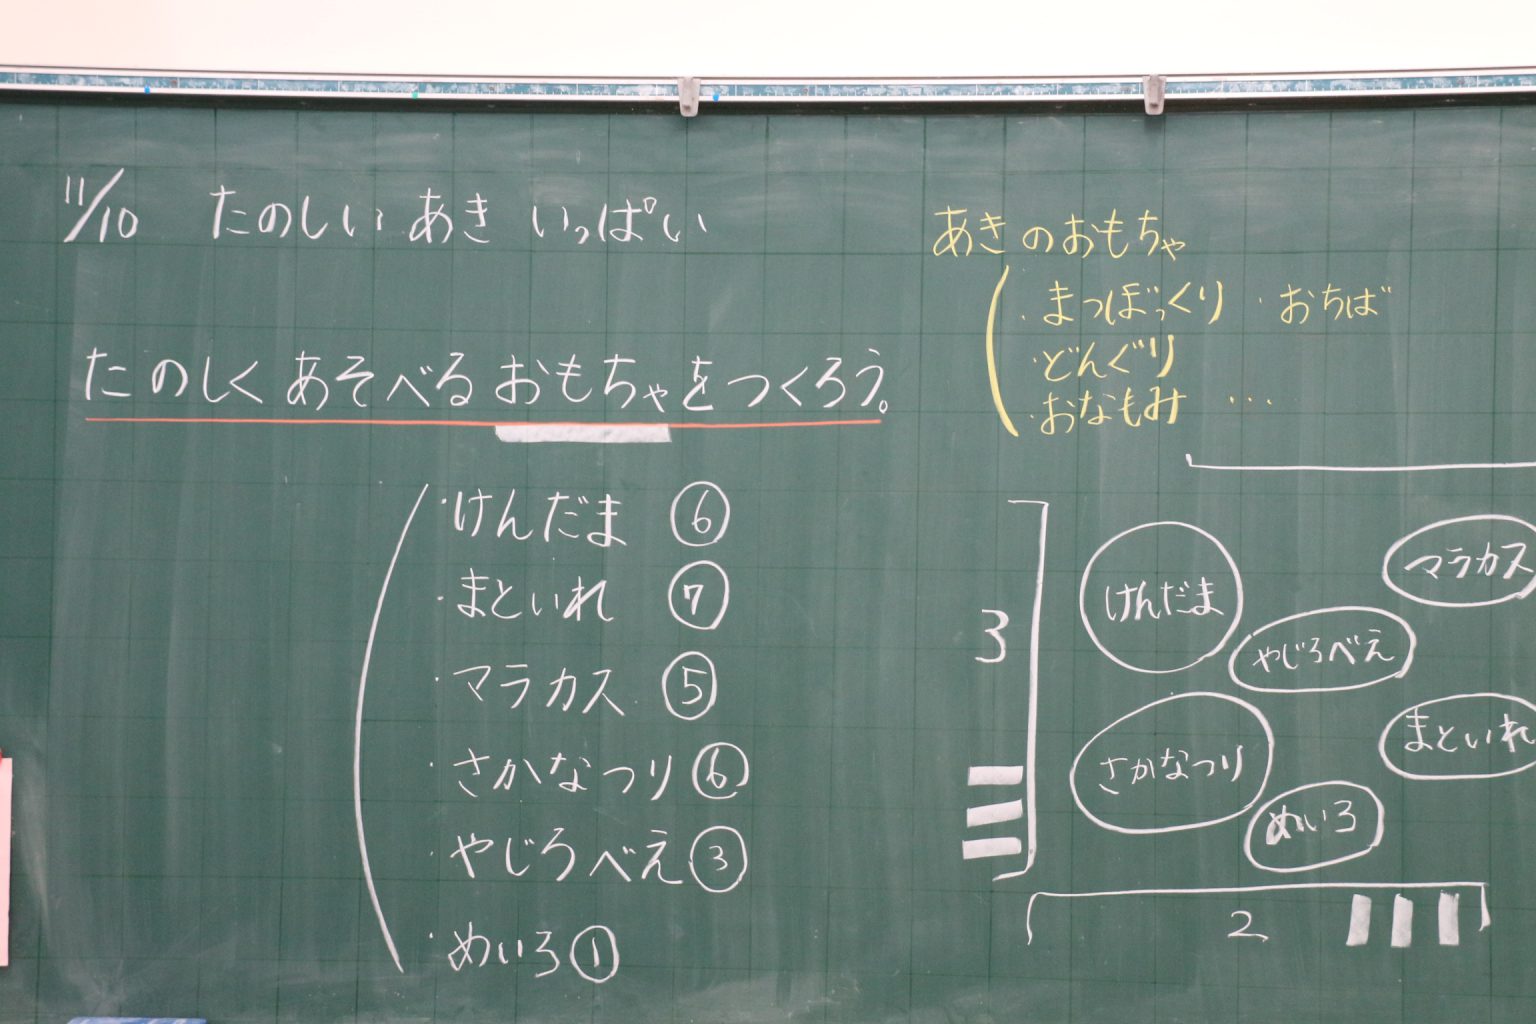 11/10 たのしい あき いっぱい
たのしく あそべる おもちゃを つくろう。
・けんだま ⑥
・まといれ ⑦
・マラカス ⑤
・さかなつり ⑥
・やじろべえ ③
・めいろ ①
あきのおもちゃ
・まつぼっくり ・おちば
・どんぐり
・おなもみ …
3
けんだま
マラカス
やじろべえ
さかなつり
まといれ
めいろ
2